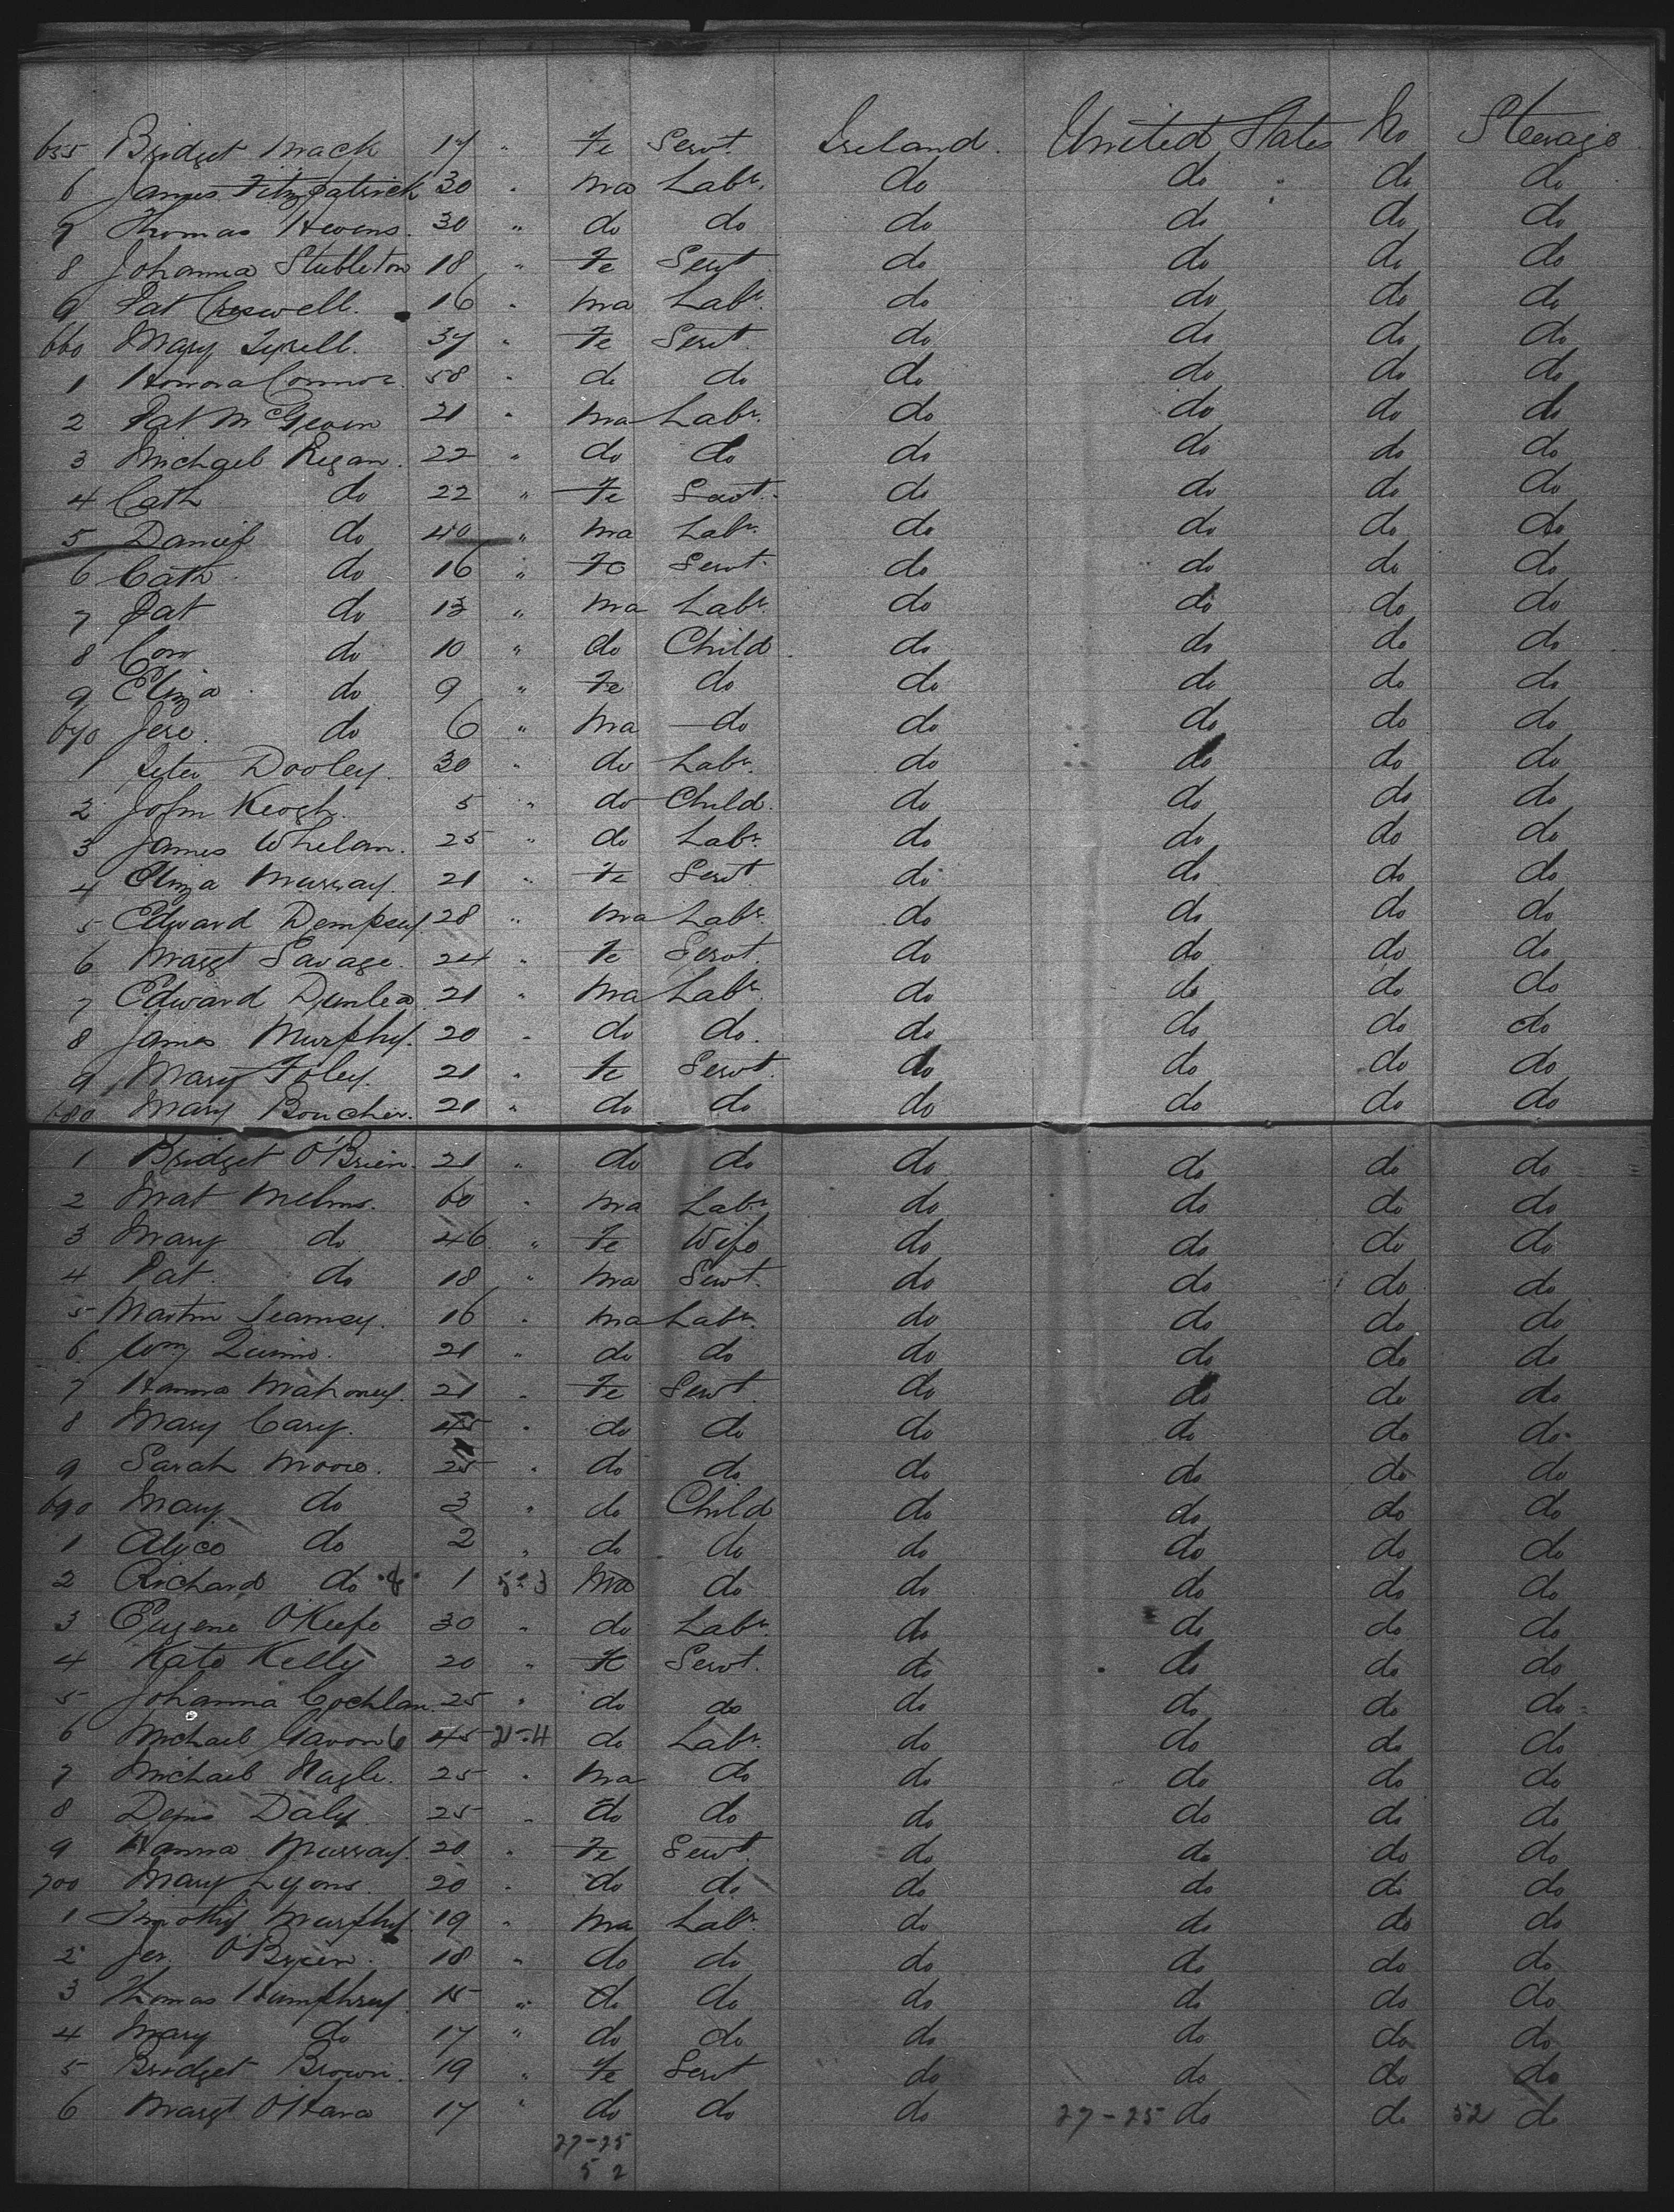 655 Bridget Mack 17 " Fe Servt. Ireland. United States No Steerage
6 James Fitzpatrick 30 " Ma Labr. do do do do
7 Thomas 30 " do do do do do do
8 Johanna Stubleton 18 " Fe Servt do do do do
9 Pat Creswell. 16 " Ma Labr. do do do do
660 Mary Tyrell. 37 " Fe Servt. do do do do
1 Honora Connor. 58 " do do do do do do
2 Pat McGeown 21 " Ma Labr. do do do do
3 Michael Regan. 22 " do do do do do do
4 Cath do 22 " Fe Servt. do do do do
5 Daniel do 40 " Ma Labr. do do do do
6 Cath. do 16 " Fe Servt. do do do do
7 Pat do 13 " Ma Labr. do do do do
8 Con do 10 " do Child. do do do do
9 Eliza do 9 " Fe do do do do do
670 Jere. do 6 " Ma do do do do do
1 Peter Dooley. 30 " do Labr. do do do do
2 John Keogh. 5 " do Child. do do do do
3 James Whelan. 25 " do Labr. do do do do
4 Eliza Murray. 21 " Fe Servt do do do do
5 Edward Dempsey. 28 " Ma Labr. do do do do
6 Margt Savage. 24 " Fe Servt. do do do do
7 Edward Dunlea 21 " Ma Labr. do do do do
8 James Murphy. 20 " do do. do do do do
9 Mary Foley. 21 " Fe Servt. do do do do
680 Mary Boucher. 21 " do do do do do do
1 Bridget O'Brien. 21 " do do do do do do
2 Mat 60 " Ma Labr do do do do
3 Mary do 46 " Fe Wife do do do do
4 Pat. do 18 " Ma Servt. do do do do
5 Martin 16 " Ma Labr. do do do do
6 Wm Quinn. 21 " do do do do do do
7 Hanna Mahoney. 21 " Fe Servt. do do do do
8 Mary Cary. 45 " do do do do do do
9 Sarah Moore. 25 " do do do do do do
690 Mary do 3 " do Child do do do do
1 Alice do 2 " do do do do do do
2 Richard do 1 Ma do do do do do
3 Eugene O'Keefe 30 " do Labr. do do do do
4 Kate Kelly 20 " Fe Servt. do do do do
5 Johanna Cochlan. 25 " do do do do do do
6 Michael 45 21-4 do Labr. do do do do
7 Michael Nagle. 25 " Ma do do do do do
8 Denis Daly 25 " do do do do do do
9 Hanna Murray. 20 " Fe Servt. do do do do
700 Mary Lyons 20 " do do do do do do
1 Timothy Murphy 19 " Ma Labr. do do do do
2 Jer. O'Brien. 18 " do do do do do do
3 Thomas Humphrey. 15 " do do do do do do
4 Mary do 17 " do do do do do do
5 Bridget Brown. 19 " Fe Servt do do do do
6 Margt O'Hara 17 " do do do 27-25 do do 52 do
27-25
52